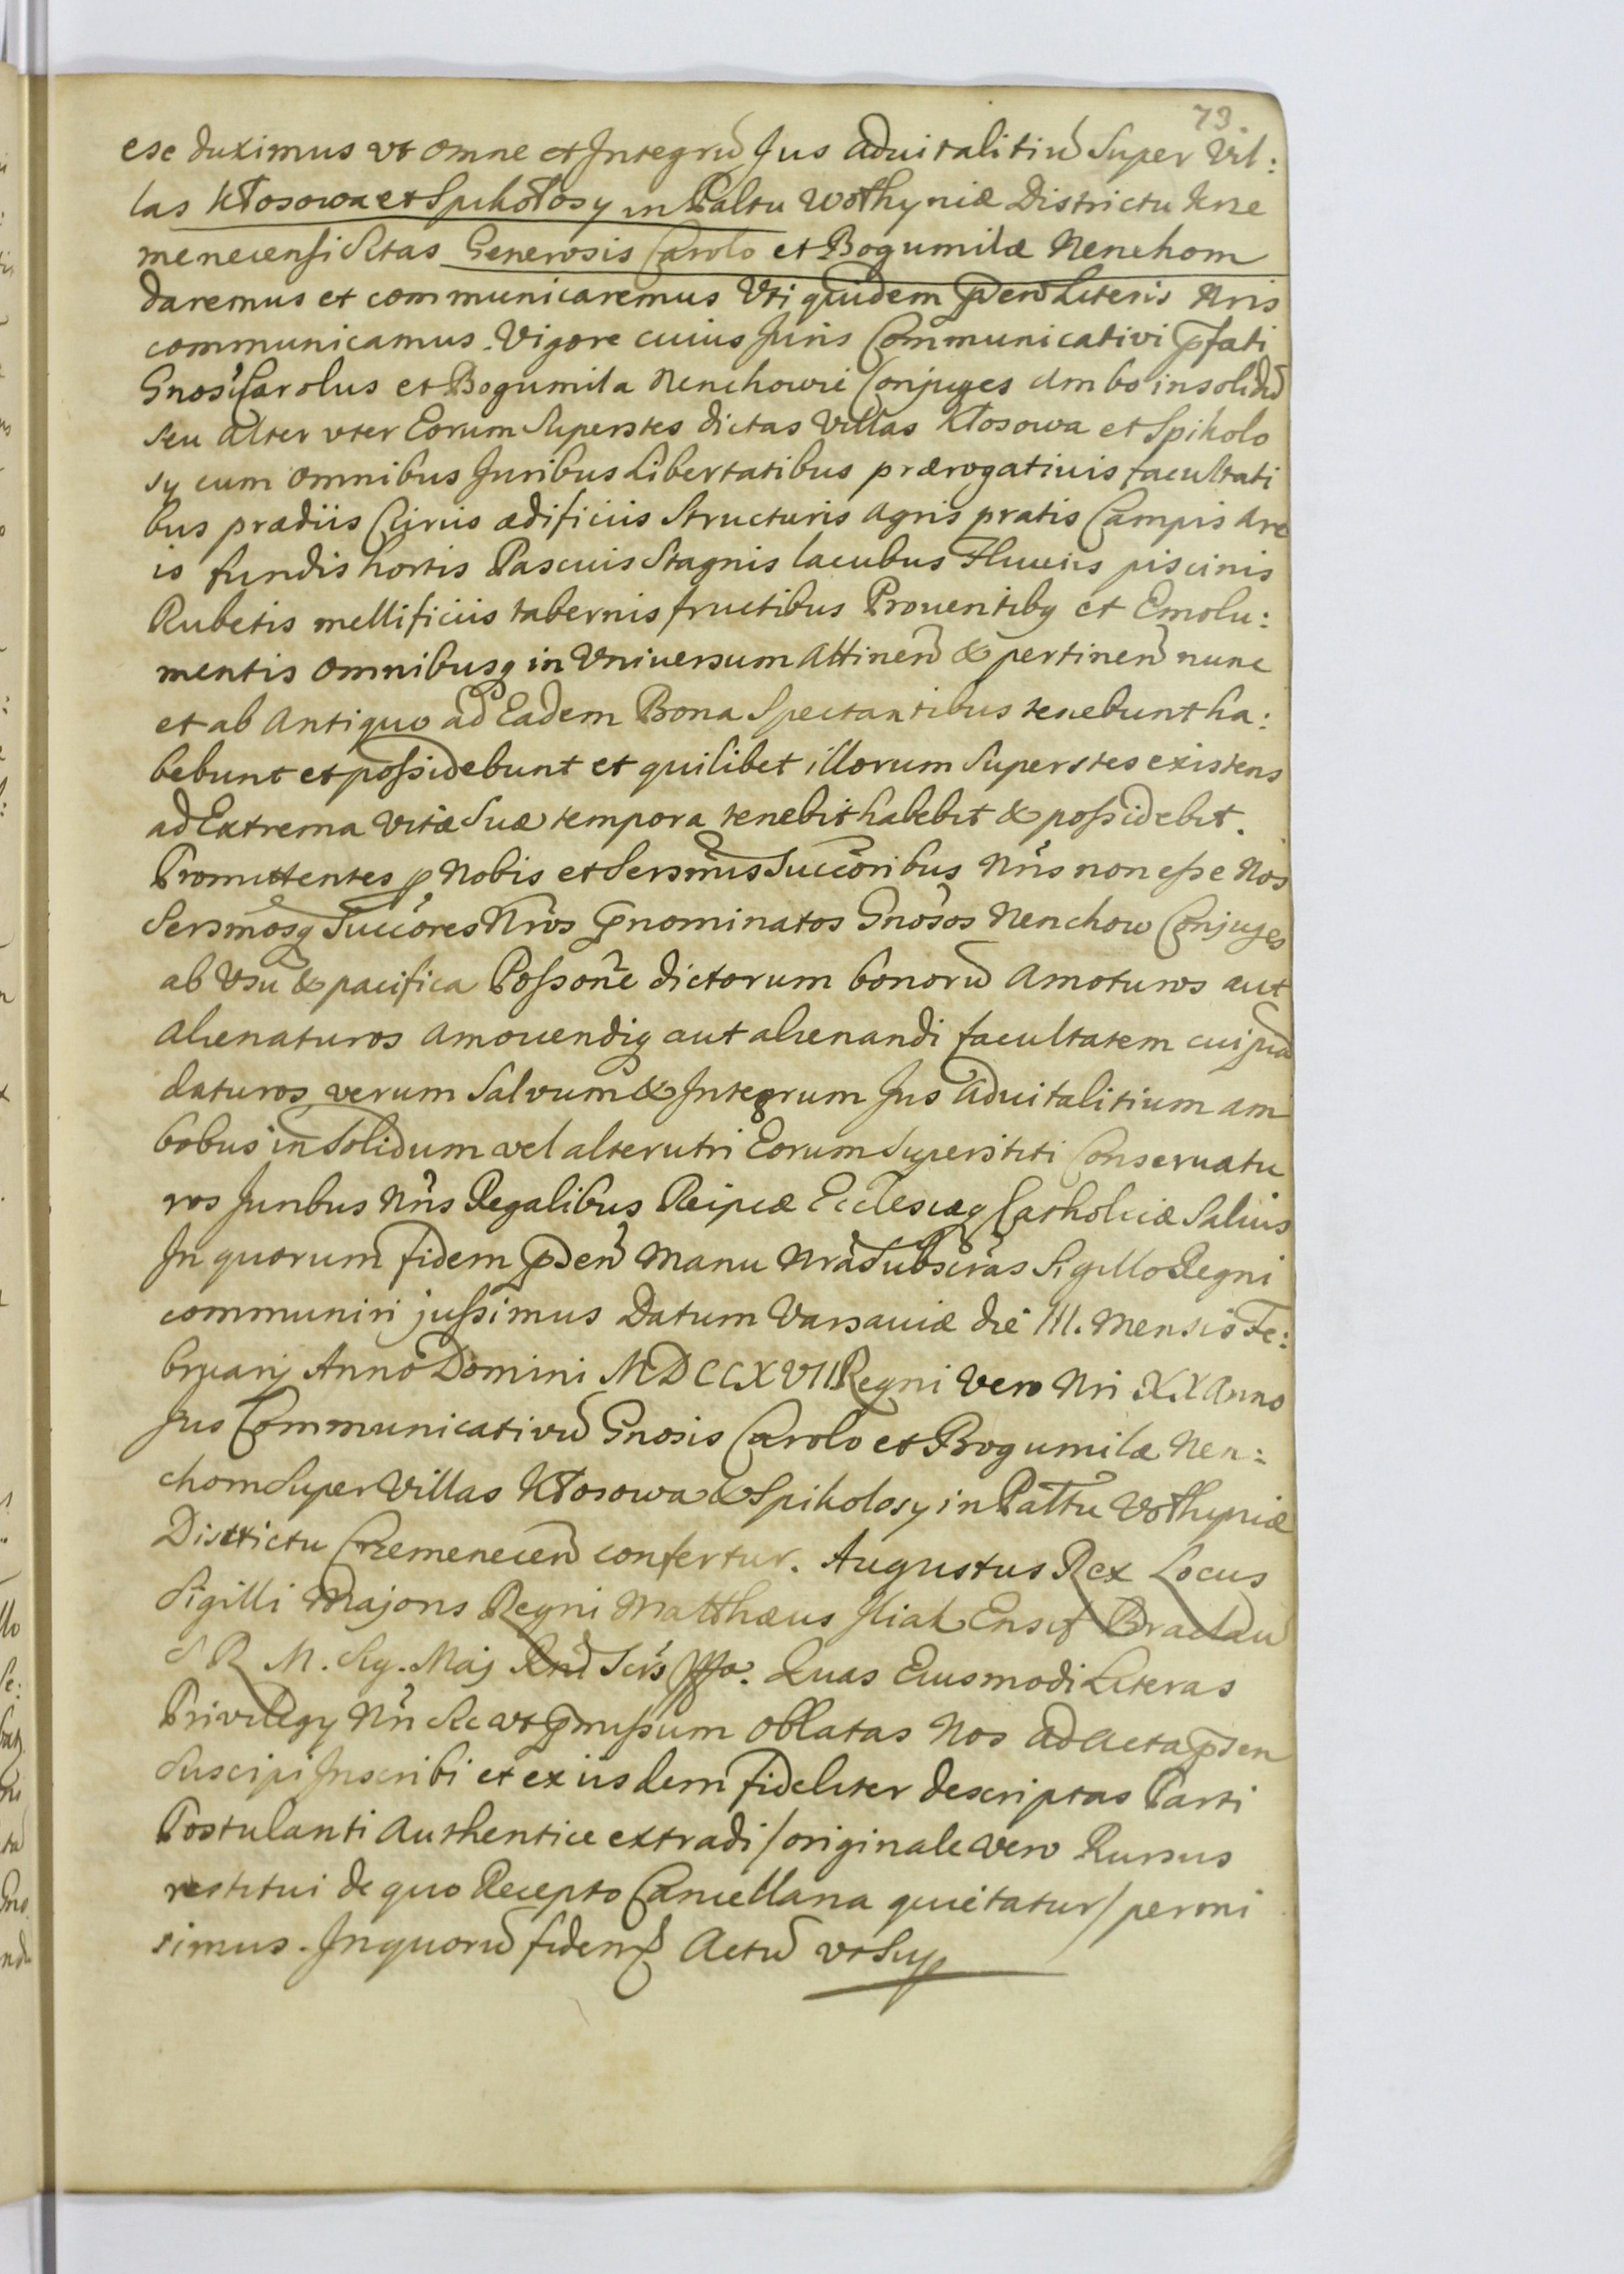 73.
ese duximus vt omne et Integrũ Jus aduitalitiũ Super Vil:
las Kłosowa et Spikołosy in Paltu Wołhyniæ Districtu Kre
menecensi Sitas Generosis Carolo et Bogumilæ Nenchom
daremus et communicaremus Vti quidem p̃den̄ Literis Nris
communicamus. Vigore cuius Juris Communicativi p̃fati
Gnosi Carolus et Bogumila Nenchowie Conjuges Ambo insolidũ
seu alter vter Eorum Superstes dictas Villas Kłosowa et Spikolo
sy cum omnibus Juribus Libertatibus prærogatiuis facultati
bus prædiis ædificiis Structuris agris pratis Campis Are
is fundis hortis Pascuis Stagnis lacubus Fluuiis piscinis
Rubetis mellificiis tabernis fructibus Prouentibq et Emolu:
mentis omnibusq in Vniuersum Attinen̄ & pertinen̄ nunc
et ab Antiquo ad Eadem Bona Spectantibus tenebunt ha:
bebunt et possidebunt et quilibet illorum Superstes existens
ad Extrema vitæ Suæ tempora tenebit habebit & possidebit.
Promittentes p Nobis et Sersm̃is Succõribus Nr̃is non esse Nos
Sersmosq Succõres Nr̃os p̃nominatos Gnosos Nenchow Conjuges
ab Vsu & pacifica Posson̄e dictorum bonorũ amoturos aut
alienaturos amouendiq aut alienandi facultatem cuipiã
daturos, verum Salvum & Integrum Jus aduitalitium am
bobus in Solidum vel alterutri Eorum Superstiti Conseruatu
ros Juribus Nr̃is Regalibus Reipcæ Ecclesiæq Catholicæ Saluis
In quorum fidem p̃den̄ Manu Nr̃a Subscr̃as Sigillo Regni
communiri jussimus Datum Varsauiæ die III. Mensis Fe:
bruarij Anno Domini MDCCXVII Regni Vero Nri XX Anno
Jus Communicativũ Gnosis Carolo et Bogumilæ Nen:
chom Super Villas Kłosowa & Spikolosy in Pałtu Wołhyniæ
Districtu Cremenecen̄ confertur. Augustus Rex Locus
Sigilli Majoris Regni Matthæus Jliak Ensif Braclaw
S R M. Sig. Maj Rni Scr̃s Quas Eiusmodi Literas
Privilegy Nr̃i Sic vt p̃missum oblatas Nos ad Acta p̃den
Suscipi Inscribi et ex iisdem fideliter descriptas Parti
Postulanti Authentice extradi / originale vero Rursus
restitui de quo Recepto Cancellaria quietatur / permi
simus. In quorũ fidem Actũ vt Sup